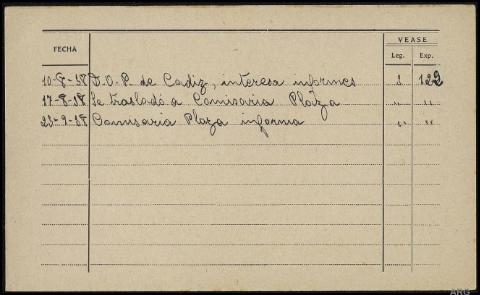 VEASE
FECHA Leg. Exp.
10-8-38 D.O.P. de Cadiz, interesa informes 1 122
17-8-38 Se trasladó a Comisaria Plaza " "
23-9-38 Comisaria Plaza informa " "
ARG